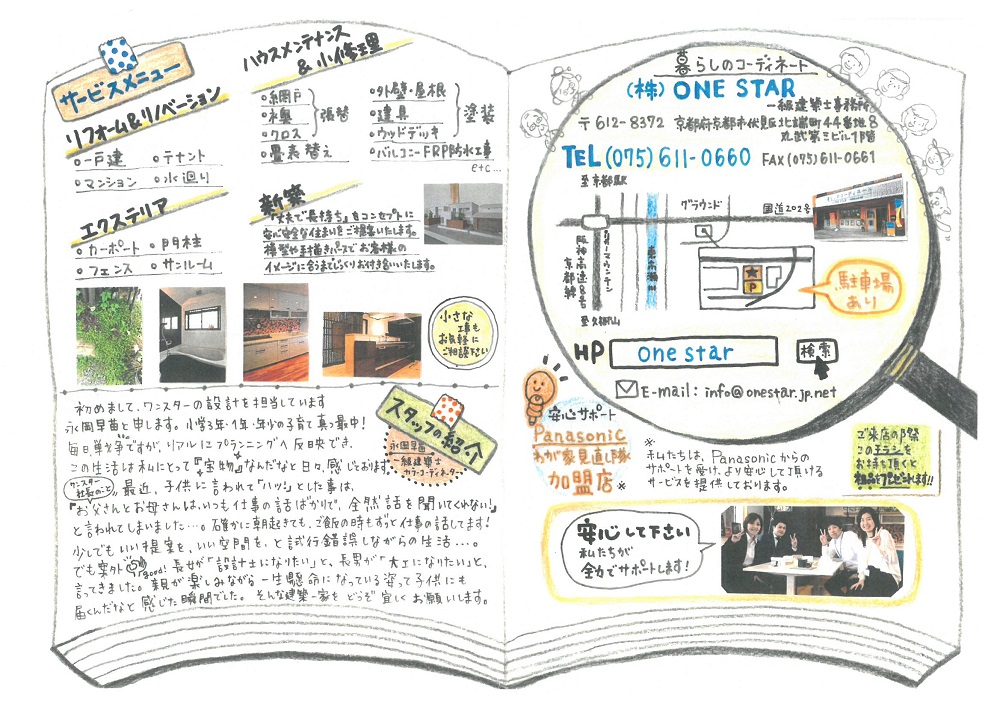 サービスメニュー
リフォーム&リノベーション
○一戸建 ○テナント
○マンション ○水廻り
エクステリア
○カーポート ○門柱
○フェンス ○サンルーム
ハウスメンテナンス
&小修理
○網戸
○襖
○クロス
張替
○畳表替え
○外壁・屋根
○建具
○ウッドデッキ
塗装
○バルコニーFRP防水工事
etc...
新築
『丈夫で長持ち』をコンセプトに
安心安全な住まいをご提案いたします。
模型や手描きパースでお客様の
イメージに合うまでじっくりお付き合いいたします。
小さな
工事も
お気軽に
ご相談下さい
スタッフの紹介
永岡早苗
一級建築士
カラーコーディネーター
初めまして、ワンスターの設計を担当しています
永岡早苗と申します。小学3年・1年・年少の子育て真っ最中!
毎日戦争ですが、リアルにプランニングへ反映でき、
この生活は私にとって『宝物』なんだなと日々、感じております。
ワンスター
社長のこと
最近、子供に言われて「ハッ!」とした事は、
『お父さんとお母さんは、いつも仕事の話ばかりで、全然話を聞いてくれない!』
と言われてしまいました…。確かに朝起きても、ご飯の時もずっと仕事の話してます!
少しでもいい提案を、いい空間を、と試行錯誤しながらの生活…。
でも案外good!長女が「設計士になりたい」と、長男が「大工になりたい」と、
言ってきました。親が楽しみながら一生懸命になっている姿って子供にも
届くんだなと感じた瞬間でした。そんな建築一家をどうぞ宜しくお願いします。
暮らしのコーディネート
(株)ONE STAR
一級建築士事務所
〒612-8372 京都府京都市伏見区北端町44番地8
丸武第三ビル1階
TEL(075)611-0660 FAX(075)611-0661
至京都駅
グラウンド
国道202号
阪神高速8号
京都線
東高瀬川
P
駐車場
あり
HP one star 検索
E-mail: info@onestar.jp.net
安心サポート
Panasonic
わが家見直し隊
加盟店
※
※
私たちは、Panasonicからの
サポートを受け、より安心して頂ける
サービスを提供しております。
ご来店の際
このチラシを
お持ち頂くと
粗品をプレゼントします!!
安心して下さい
私たちが
全力でサポートします!